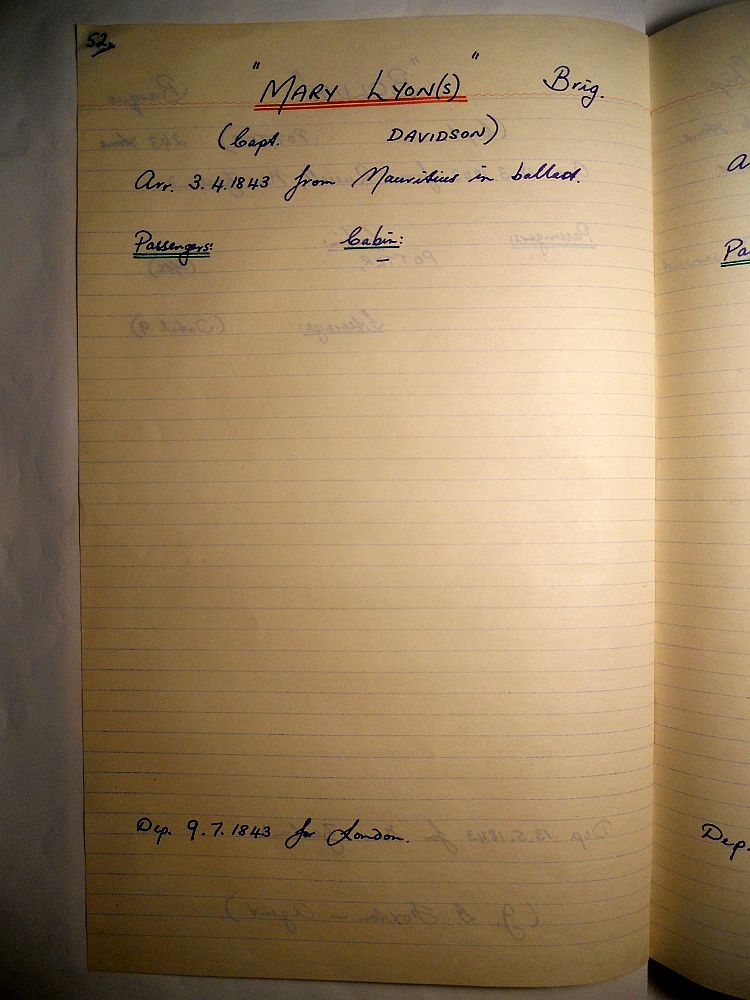 52
"MARY LYON(S)" Brig.
(Capt. DAVIDSON)
Arr. 3.4.1843 from Mauritius in ballast.
Passengers: Cabin:
—
Dep. 9.7.1843 for London.
A
Pa
Dep.